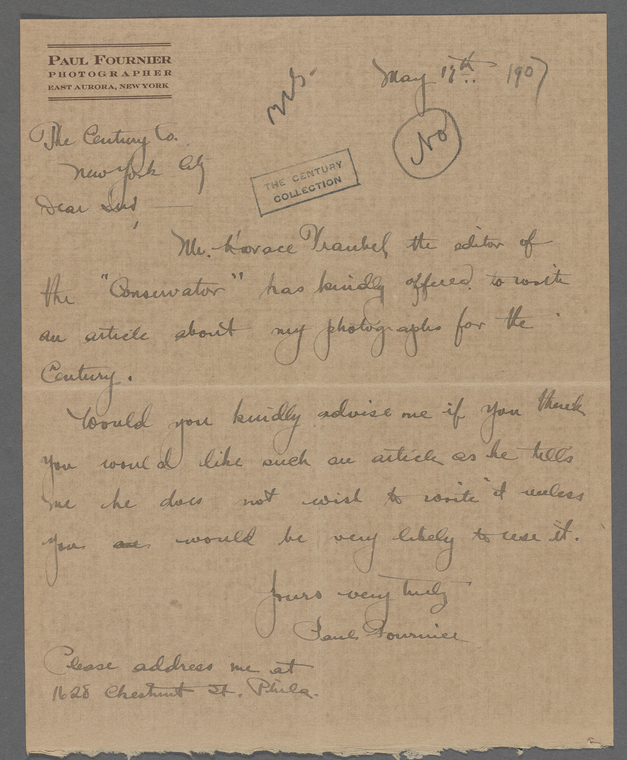 PAUL FOURNIER
PHOTOGRAPHER
EAST AURORA, NEW YORK
May 13th.. 1907
No
THE CENTURY
COLLECTION
The Century Co.
New York City
Dear Sirs
Mr. Horace Traubel, the editor of
the "Conservator" has kindly offered to write
an article about my photographs for the
Century.
Would you kindly advise me if you think
you would like such an article as he tells
me he does not wish to write it unless
you would be very likely to use it.
Yours very truly
Paul Fournier
Please address me at
1628 Chestnut St. Phila.